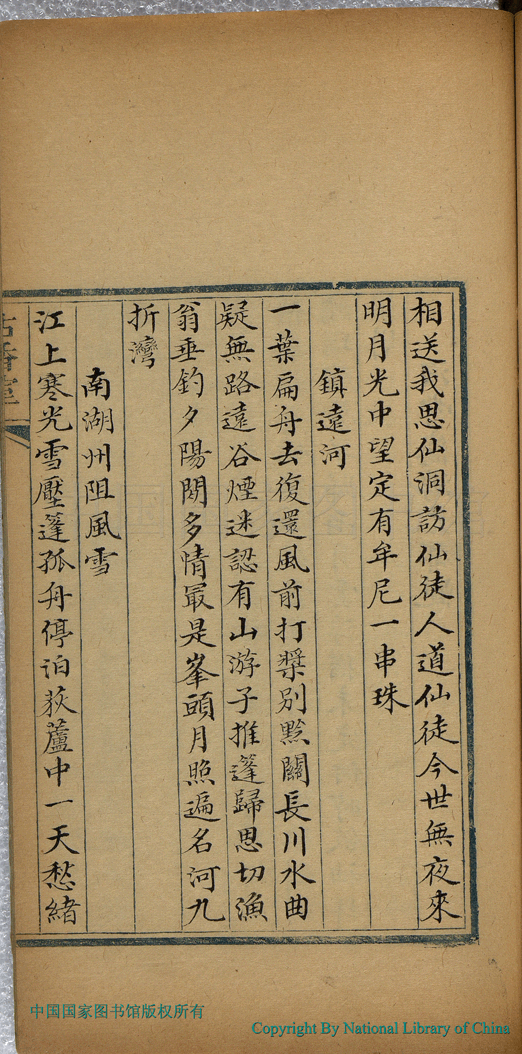 相送我思仙洞訪仙徒人道仙徒今世無夜來
明月光中望定有牟尼一串珠
鎮遠河
一葉扁舟去復還風前打槳別黔關長川水曲
疑無路遠谷煙迷認有山游子推蓬歸思切漁
翁垂釣夕陽閒多情最是峯頭月照遍名河九
折灣
南湖州阻風雪
江上寒光雪壓蓬孤舟停泊荻蘆中一天愁緒
中国国家图书馆版权所有
Copyright By National Library of China